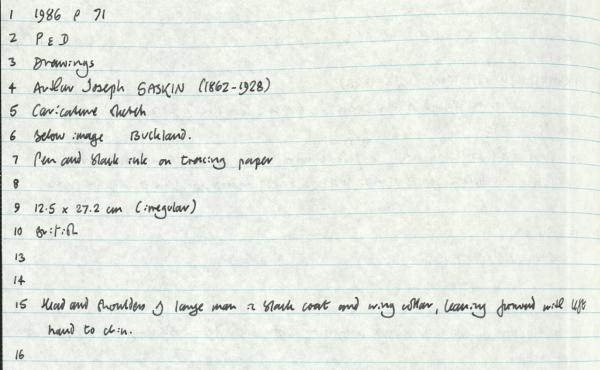 1 1986 P 71
2 P & D
3 Drawings
4 Arthur Joseph GASKIN (1862-1928)
5 Caricature sketch
6 Below image Buckland.
7 Pen and black ink on tracing paper
8
9 12.5 x 27.2 cm (irregular)
10 British
13
14
15 Head and shoulders of large man in black coat and wing collar, leaning forward with left
hand to chin.
16